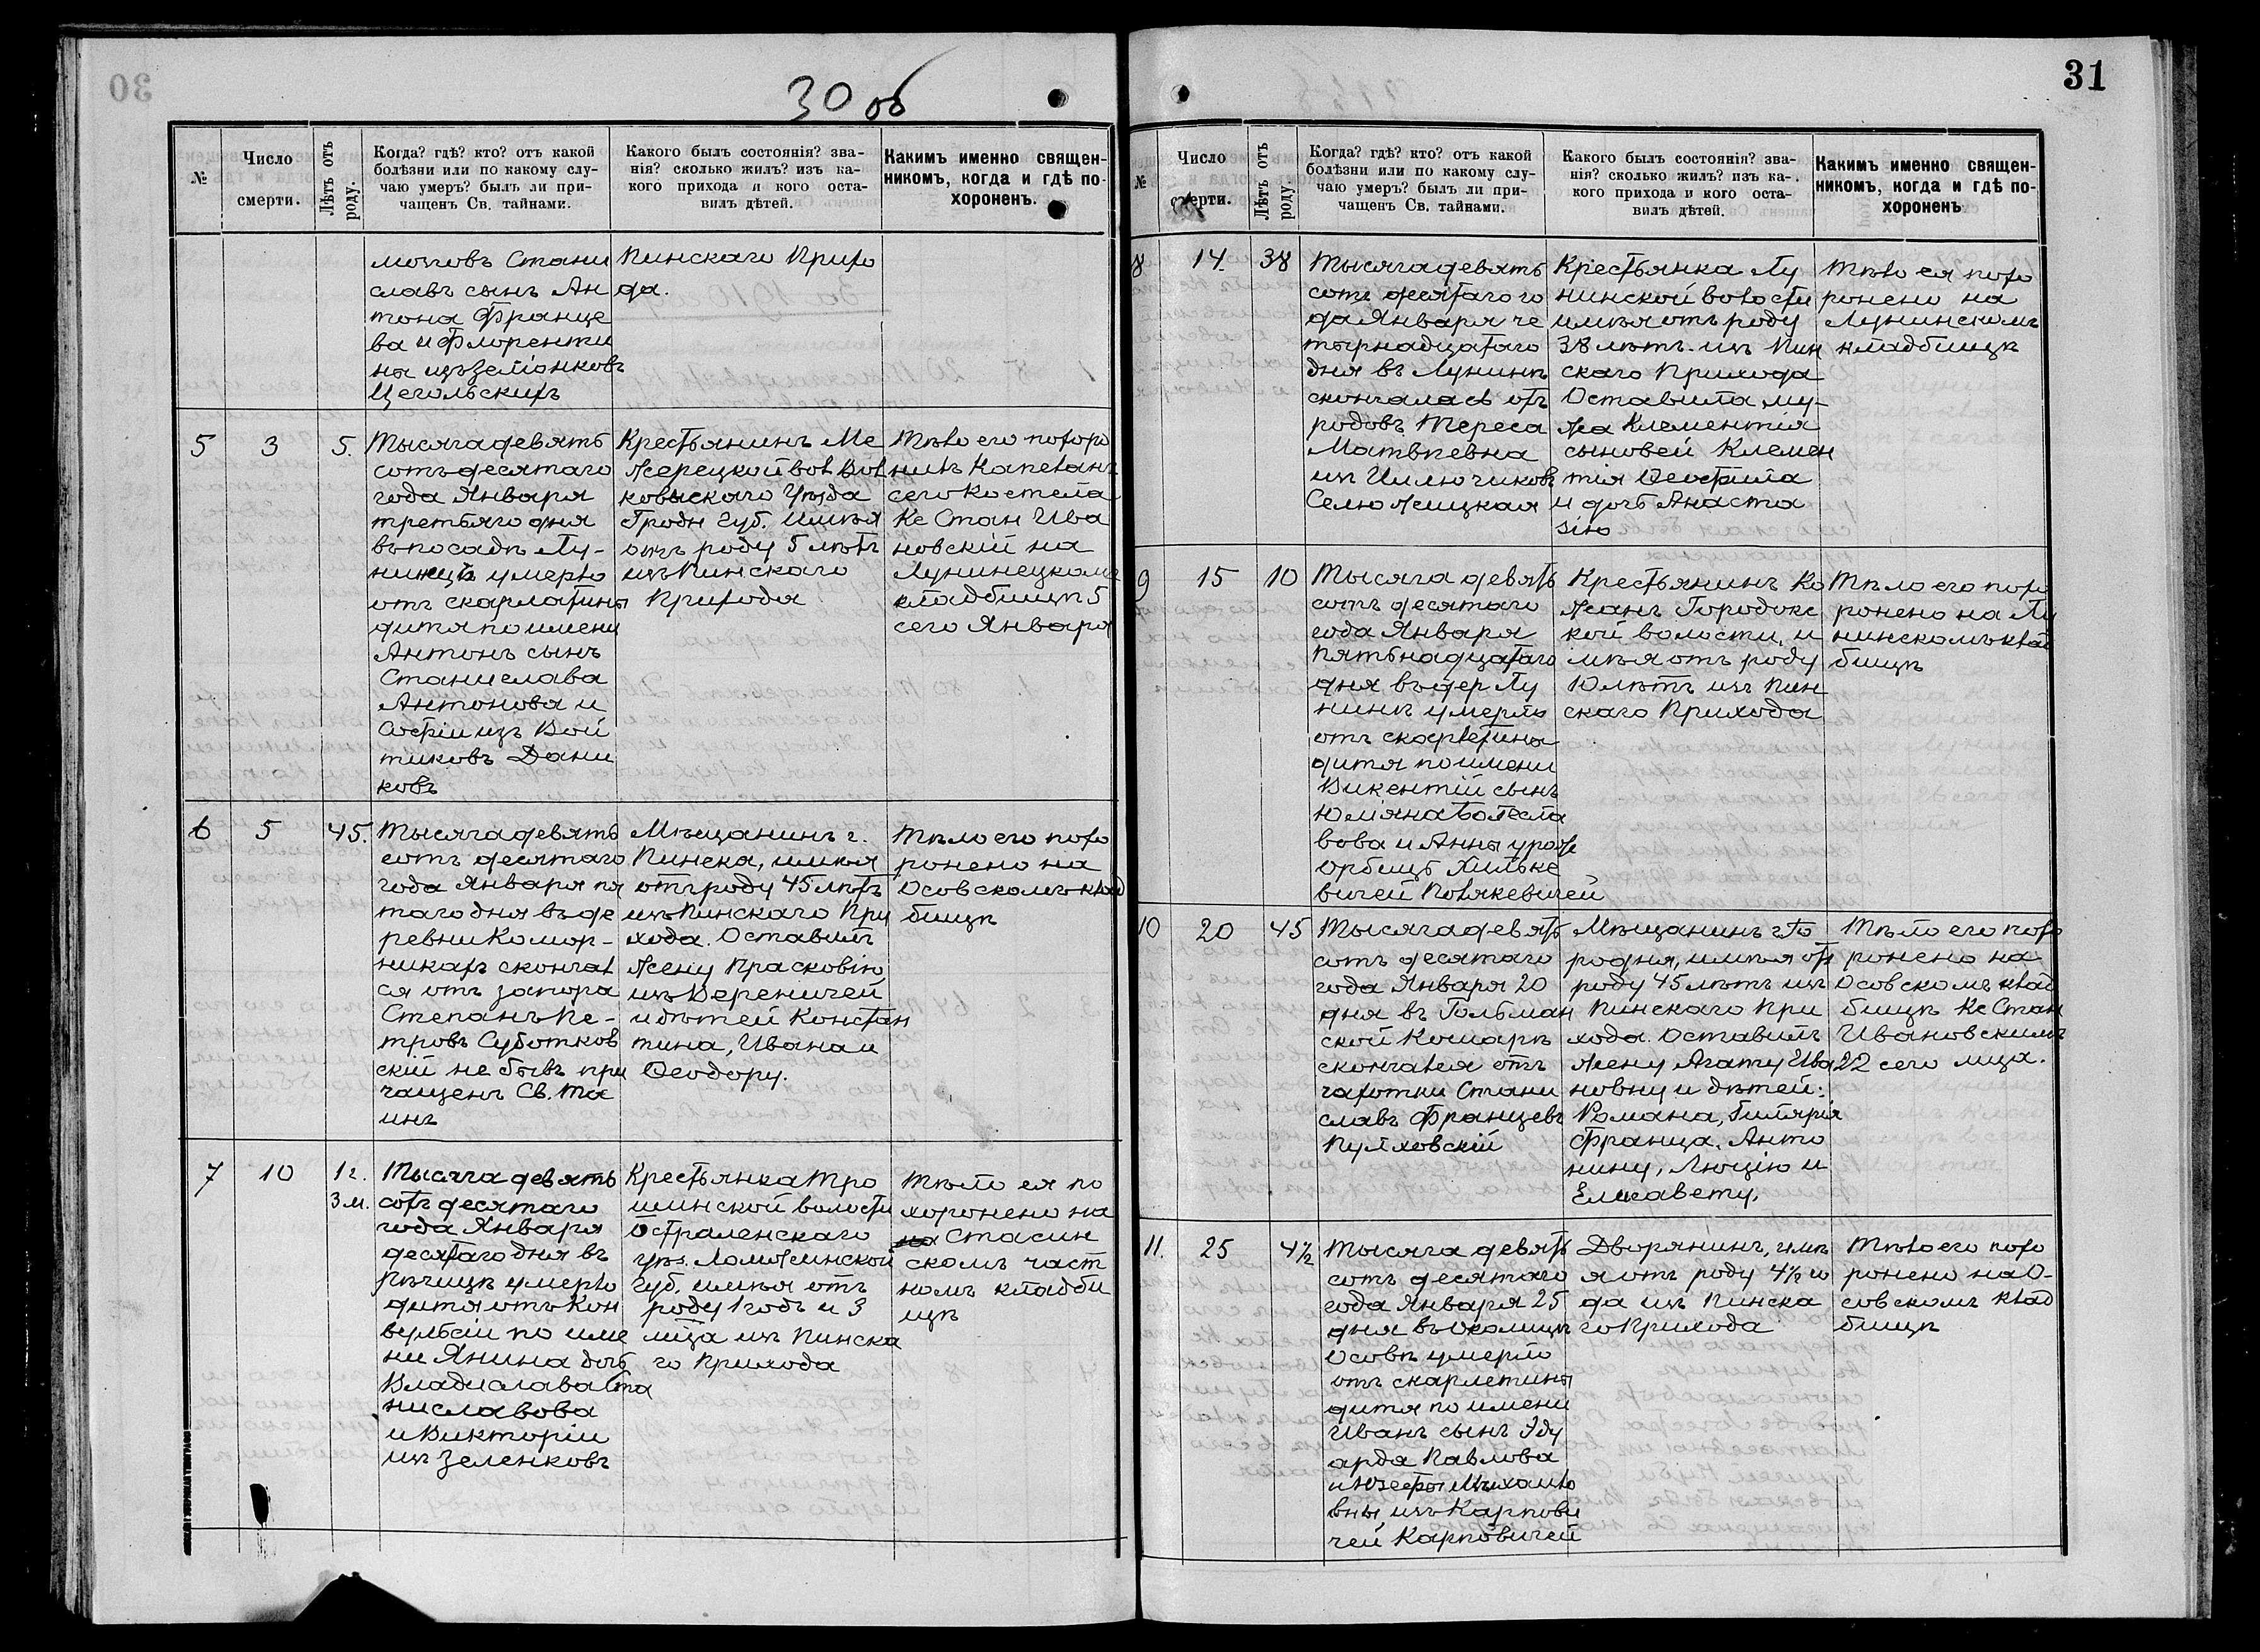 30 об
№
Число
смерти.
Лѣтъ отъ
роду.
Когда? гдѣ? кто? отъ какой
болѣзни или по какому слу-
чаю умеръ? былъ ли при-
чащенъ Св. тайнами.
Какого былъ состоянія? зва-
нія? сколько жилъ? изъ ка-
кого прихода и кого оста-
вилъ дѣтей.
Какимъ именно священ-
никомъ, когда и гдѣ по-
хороненъ.
Стани
славъ сынъ Ан
тона Франце
ва и Флоренти
ны изъ Земіонковъ
Цегольскихъ
Пинскаго Прихо
да.
5
3
5.
Тысяча девять
сотъ десятаго
года Января
третьяго дня
въ посадѣ Лу-
нинцѣ умерло
отъ скарлатины
дитя по имени
Антонъ сынъ
Станислава
Антонова и
Софіи изъ Вой
тиковъ Дани
ковъ
Крестьянинъ Ме
жерецкой вол Вол
ковыскаго Уѣзда
Гродн Губ. имѣя
отъ роду 5 лѣтъ
изъ Пинскаго
Прихода
Тѣло его похоро
нилъ Капеланъ
сего Костела
Кс Стан Ива
новскій на
Лунинецкомъ
кладбищѣ 5
сего Января
6
5
45.
Тысяча девять
сотъ десятаго
года Января пя
таго дня въ де
ревни Комор-
никахъ скончал
ся отъ запора
Степанъ Пе-
тровъ Суботков
скій не бывъ при
чащенъ Св. Та
инъ
Мѣщанинъ г.
Пинска, имѣя
отъ роду 45 лѣтъ
изъ Пинскаго При
хода. Оставилъ
жену Прасковію
изъ Вереничей
и дѣтей Констан
тина, Ивана и
Ѳеодору.
Тѣло его похо
ронено на
Осовскомъ клад
бищѣ
7
10
1 г.
3 м.
Тысяча девять
сотъ десятаго
года Января
десятаго дня въ
Рѣчицѣ умерло
дитя отъ Кон
вульсіи по име
ни Янина дочь
Владислава Ста
ниславова
и Викторіи
изъ Зеленковъ
Крестьянка Тро
шинской волости
Остраленскаго
уѣз. Ломжинской
Губ. имѣя отъ
роду 1 годъ и 3
мѣца изъ Пинска
го Прихода
Тѣло ея по
хоронено на
на Стасин
скомъ част
номъ кладби
щѣ
31
№
Число
смерти.
Лѣтъ отъ
роду.
Когда? гдѣ? кто? отъ какой
болѣзни или по какому слу-
чаю умеръ? былъ ли при-
чащенъ Св. тайнами.
Какого былъ состоянія? зва-
нія? сколько жилъ? изъ ка-
кого прихода и кого оста-
вилъ дѣтей.
Какимъ именно священ-
никомъ, когда и гдѣ по-
хороненъ
8
14.
38
Тысяча девять
сотъ десятаго го
да Января че
тырнадцатаго
дня въ Лунинѣ
скончалась отъ
родовъ Тереса
Матвѣевна
изъ Цилючиковъ
Селюжицкая
Крестьянка Лу
нинской волости
имѣя отъ роду
38 лѣтъ. изъ Пин
скаго Прихода
Оставила му-
жа Клементія
сыновей Клемен
тія Ѳеофила
и дочь Анаста
зію
Тѣло ея похо
ронено на
Лунинскомъ
кладбищѣ
9
15
10
Тысяча девять
сотъ десятаго
года Января
пятьнадцатаго
дня въ дер Лу
нинѣ умерло
отъ скарлетины
дитя по имени
Викентій сынъ
Юліяна Болесла
вова и Анны урож
Орбицъ Хильке
вичей Полякевичей
Крестьянинъ Ко
жанъ Городокс
кой волости, и
мѣя отъ роду
10 лѣтъ изъ Пин
скаго Прихода
Тѣло его похо
ронено на Лу
нинскомъ клад
бищѣ
10
20
45
Тысяча девять
сотъ десятаго
года Января 20
дня въ Гольман
ской Кошарѣ
скончался отъ
чахотки Стани
славъ Францевъ
Пулховскій
Мѣщанинъ г Го
родня, имѣя отъ
роду 45 лѣтъ изъ
Пинскаго При
хода. Оставилъ
жену Агату Ива
новну и дѣтей:
Романа, Гилярія
Франца, Анто
нину, Люцію и
Елисавету.
Тѣло его похо
ронено на
Осовскомъ клад
бищѣ Кс Стан
Ивановскимъ
22 сего мца.
11.
25
4½
Тысяча девять
сотъ десятаго
года Января 25
дня въ околицѣ
Осовѣ умерло
отъ скарлетины
дитя по имени
Иванъ сынъ Эду
арда Павлова
и Юзефы Михайло
вны, изъ Карпови
чей Карповичей
Дворянинъ, имѣ
я отъ роду 4½ го
да изъ Пинска
го Прихода
Тѣло его похо
ронено на О-
совскомъ клад
бищѣ